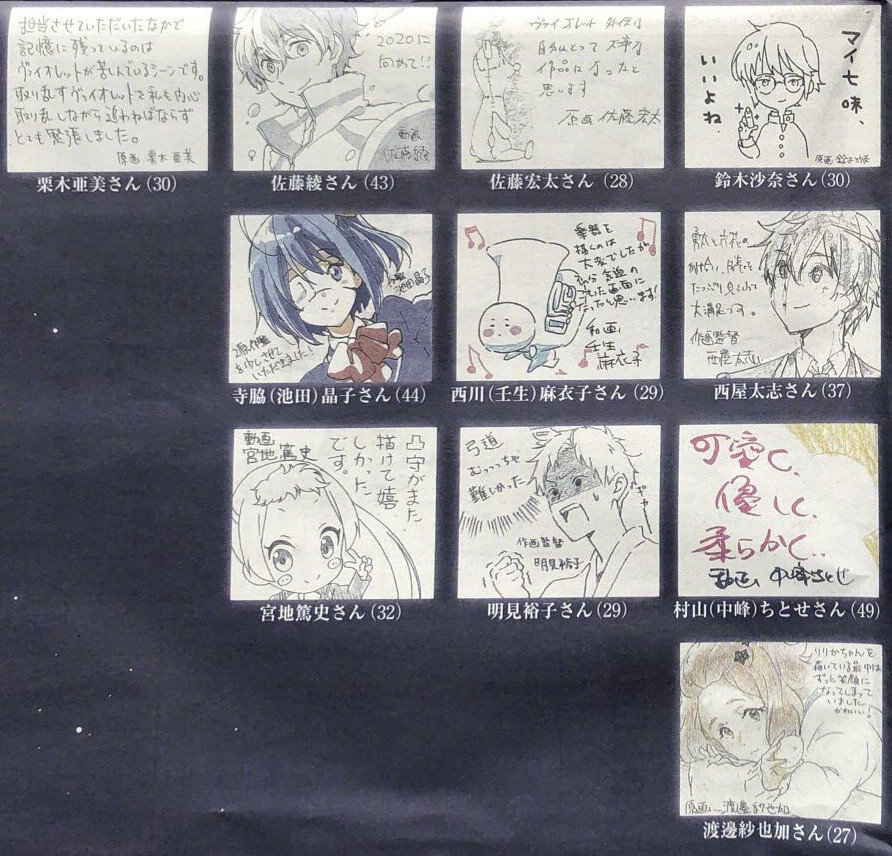 担当させていただいたなかで
記憶に残っているのは
ヴァイオレットが苦しんでいるシーンです。
取り乱すヴァイオレットを私も内心
取り乱しながら追わねばならず
とても緊張しました。
原画 栗木亜美
栗木亜美さん(30)
2020に
向けて!!
動画
佐藤綾
佐藤綾さん(43)
ヴァイオレット
自分にとって 大事な
作品になったと
思います
原画 佐藤宏太
佐藤宏太さん(28)
マイ七味、
いいよね
原画
鈴木沙奈さん(30)
作監
池田晶子
させて
いただきました!
寺脇(池田)晶子さん(44)
楽器を
描くのは
大変でしたが
画面に
なったと思います!
動画
壬生
麻衣子
西川(壬生)麻衣子さん(29)
勇太と六花の
たっぷり見られて
大満足です。
作画監督
西屋太志
西屋太志さん(37)
動画
宮地篤史
凸守がまた
描けて嬉
しかった
です。
宮地篤史さん(32)
弓道
むっっっちゃ
難しかった
作画監督
明見裕子
明見裕子さん(29)
可愛く、
優しく、
柔らかく..
動画 中峰ちとせ
村山(中峰)ちとせさん(49)
りりかちゃんを
描いている最中は
ずっと笑顔に
なってしまって
いました
かわいい!
原画 渡邊紗也加
渡邊紗也加さん(27)